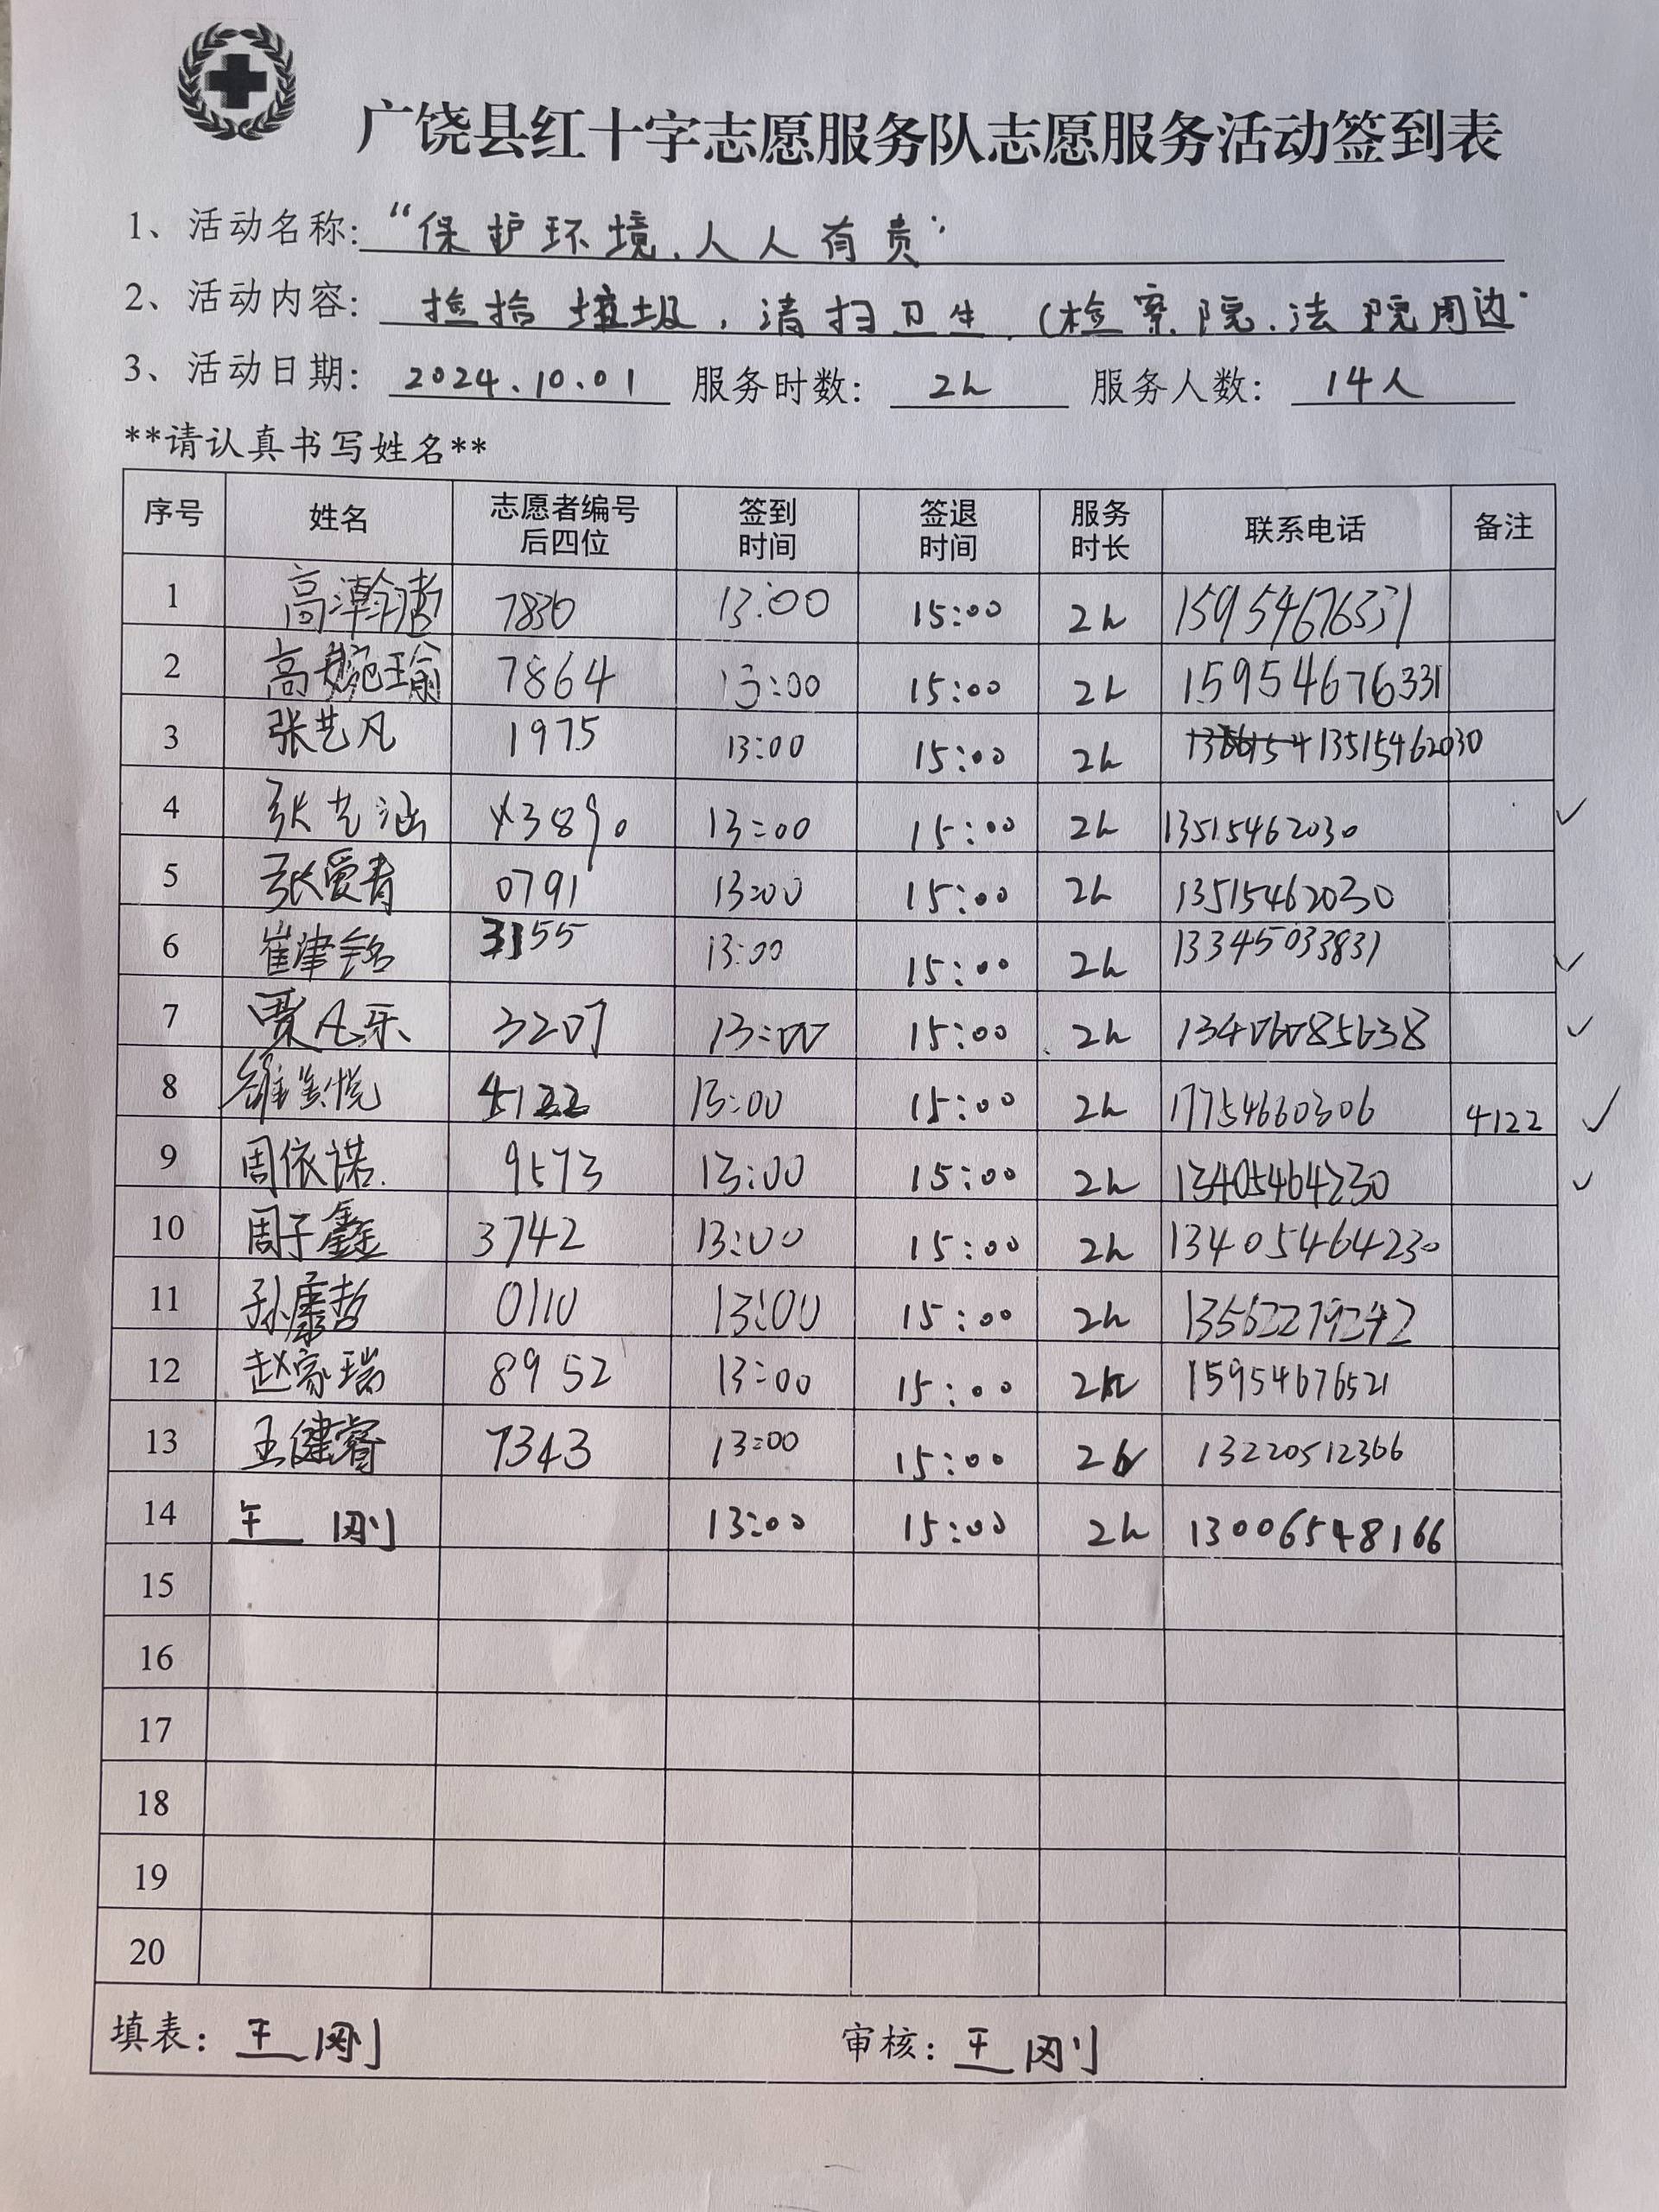 广饶县红十字志愿服务队志愿服务活动签到表
1、活动名称:“保护环境.人人有责”
2、活动内容: 捡拾垃圾,清扫卫生.(检察院.法院周边
3、活动日期: 2024.10.01 服务时数: 2h 服务人数: 14人
**请认真书写姓名**
序号 姓名 志愿者编号后四位 签到时间 签退时间 服务时长 联系电话 备注
1 高瀚 7830 13:00 15:00 2h 15954676331
2 高婉瑜 7864 13:00 15:00 2h 15954676331
3 张艺凡 1975 13:00 15:00 2h 13515462030
4 张艺涵 13:00 15:00 2h 13515462030 ✓
5 张爱青 0791 13:00 15:00 2h 13515462030
6 崔津铭 3155 13:00 15:00 2h 13345033831 ✓
7 贾凡乐 3207 13:00 15:00 2h 13406085638 ✓
8 4122 13:00 15:00 2h 17754660306 4122 ✓
9 周依诺. 9573 13:00 15:00 2h 13405464230 ✓
10 周子鑫 3742 13:00 15:00 2h 13405464230
11 孙康哲 0110 13:00 15:00 2h 13562279242
12 赵家瑞 8952 13:00 15:00 2h 15954676521
13 王健睿 7343 13:00 15:00 2h 13220512366
14 王刚 13:00 15:00 2h 13006548166
15
16
17
18
19
20
填表: 王刚 审核: 王刚